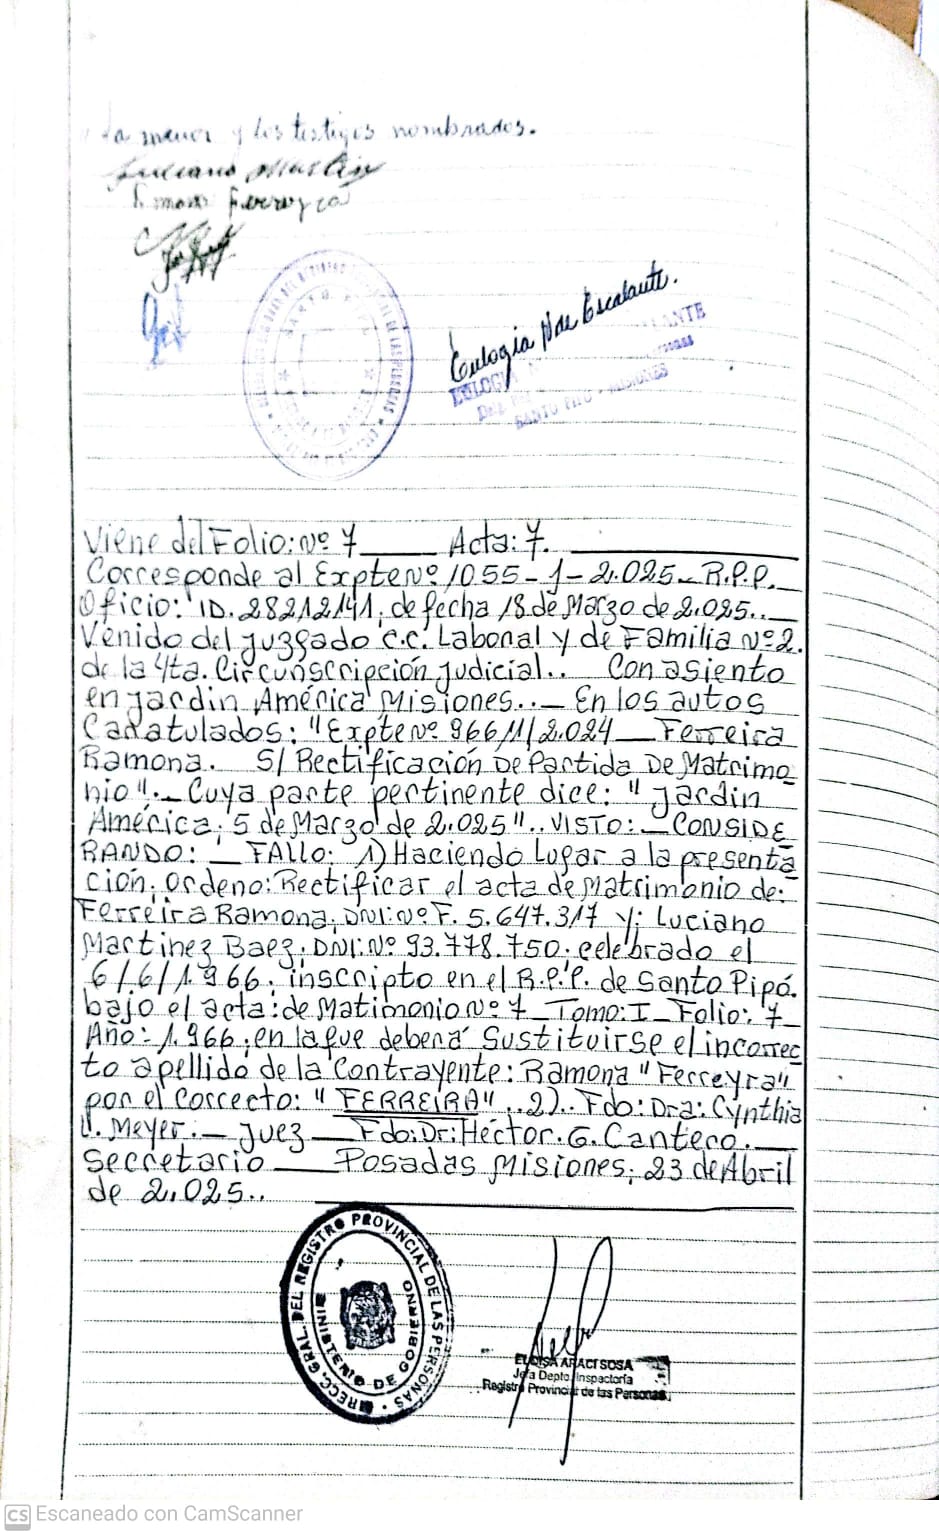 la menor y los testigos nombrados.
Luciano Martin
Ramona Ferreyra
Eulogia N de Escalante.
SANTO PIPO - MISIONES
Viene del Folio: Nº 7 Acta: 7.
Corresponde al Expte Nº 1055-1-2.025- R.P.P.
Oficio: ID. 28212141, de fecha 18 de Marzo de 2.025..
Venido del Juzgado C.C. Laboral y de Familia Nº 2.
de la 4ta. Circunscripción Judicial.. Con asiento
en Jardin América Misiones..- En los autos
Caratulados: "Expte Nº 966/1/2.024 Ferreira
Ramona. S/ Rectificación De Partida De Matrimo
nio".- Cuya parte pertinente dice: "Jardin
América, 5 de Marzo de 2.025".. VISTO: - CONSIDE
RANDO: - FALLO: 1) Haciendo Lugar a la presenta
ción, ordeno: Rectificar el acta de Matrimonio de:
Ferreira Ramona, DNI: Nº F. 5.647.317 y: Luciano
Martinez Baez, DNI: Nº 93.778.750. celebrado el
6/.6/1.966. inscripto en el R.P.P. de Santo Pipó.
bajo el acta: de Matimonio Nº 7 - Tomo: I - Folio: 7 -
Año: 1.966, en la que deberá Sustituirse el incorrec
to apellido de la Contrayente: Ramona "Ferreyra"
por el Correcto: "FERREIRA".. 2).. Fdo: Dra: Cynthia
V. Meyer.- Juez - Fdo: Dr: Héctor. G. Cantero.
Secretario Posadas Misiones, 23 de Abril
de 2.025..
DIRECC. GRAL. DEL REGISTRO PROVINCIAL DE LAS PERSONAS
MINISTERIO DE GOBIERNO
ELOISA ARACI SOSA
Jefa Depto. Inspectoría
Registro Provincial de las Personas
CS Escaneado con CamScanner